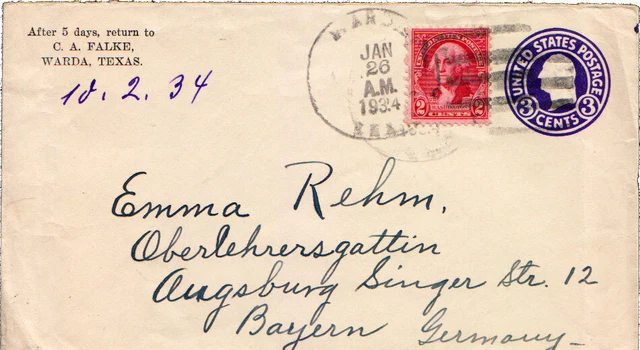 After 5 days, return to
C. A. FALKE,
WARDA, TEXAS.
10. 2. 34
WARDA
JAN
26
A.M.
1934
TEXAS
UNITED STATES POSTAGE
WASHINGTON
2 CENTS 2
UNITED STATES POSTAGE
3 CENTS 3
Emma Rehm,
Oberlehrersgattin
Augsburg Singer Str. 12
Bayern Germany